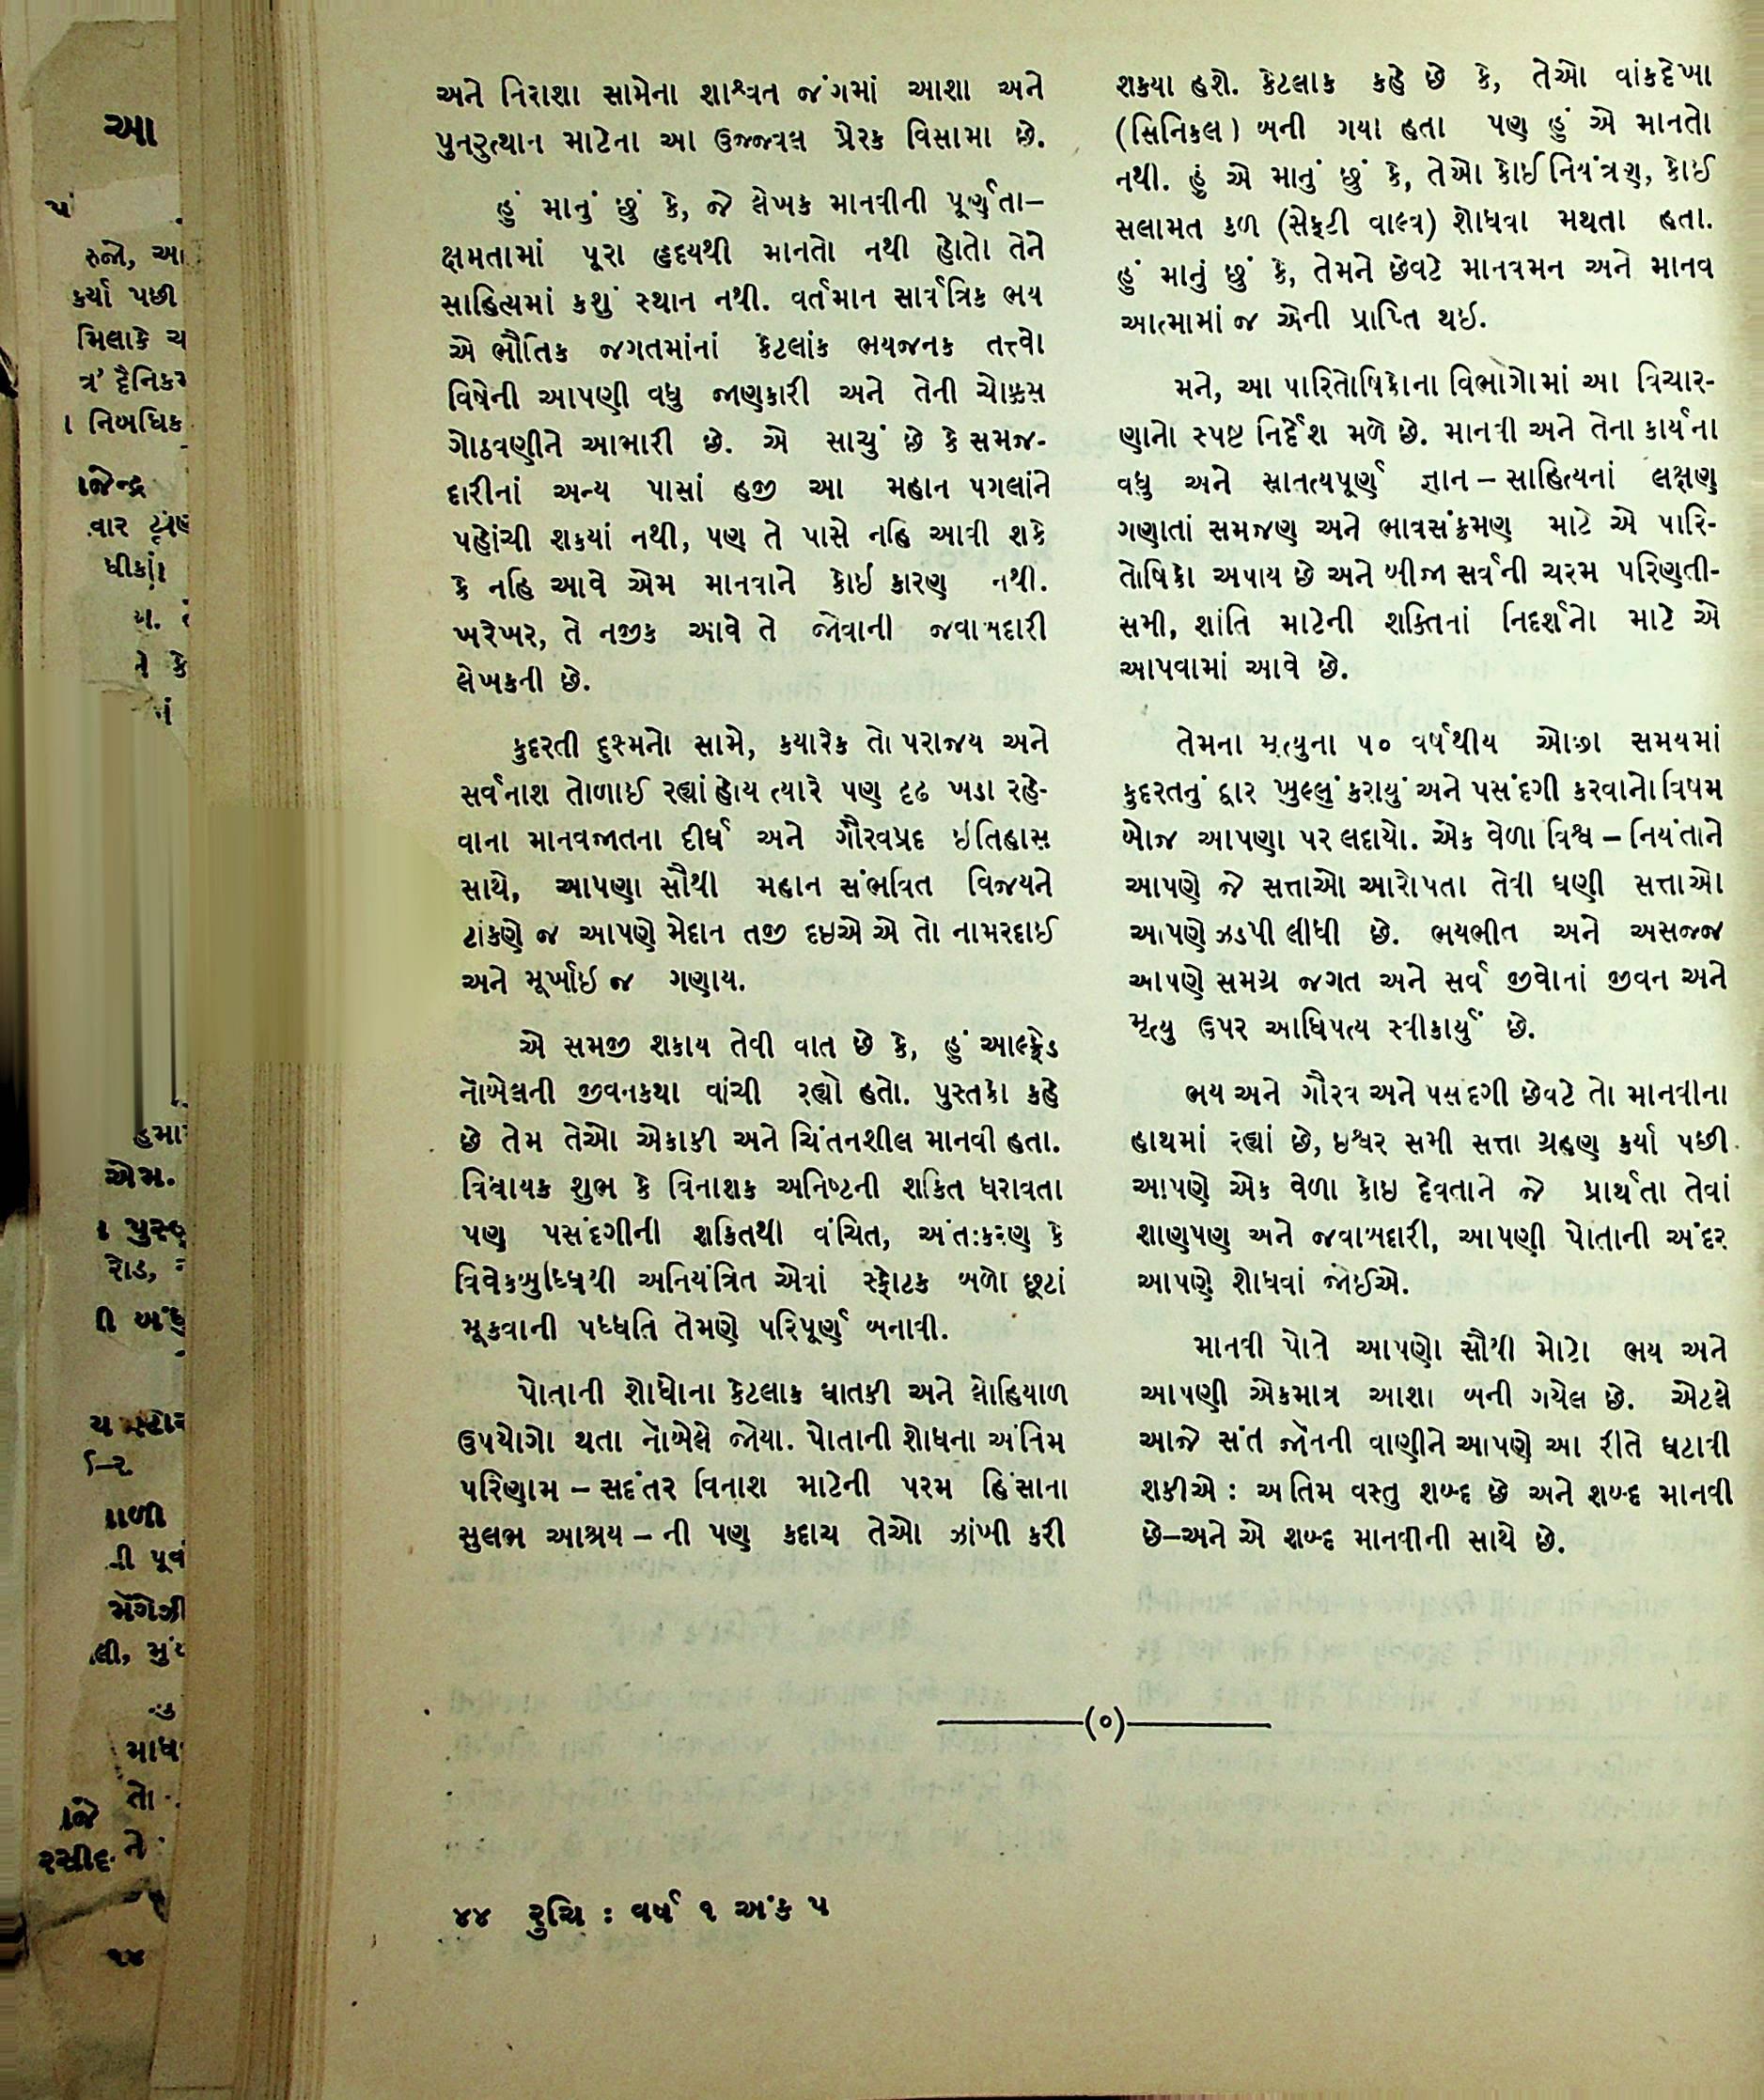 અને નિરાશા સામેના શાશ્વત જંગમાં આશા અને
પુનરુત્થાન માટેના આ ઉજ્જવલ પ્રેરક વિસામા છે.
હું માનું છું કે, જે લેખક માનવીની પૂર્ણતા–
ક્ષમતામાં પૂરા હૃદયથી માનતો નથી હોતો તેને
સાહિત્યમાં કશું સ્થાન નથી. વર્તમાન સાર્વત્રિક ભય
એ ભૌતિક જગતમાંનાં કેટલાંક ભયજનક તત્ત્વો
વિષેની આપણી વધુ જાણકારી અને તેની ચોક્કસ
ગોઠવણીને આભારી છે. એ સાચું છે કે સમજ-
દારીનાં અન્ય પાસાં હજી આ મહાન પગલાંને
પહોંચી શકયાં નથી, પણ તે પાસે નહિ આવી શકે
કે નહિ આવે એમ માનવાને કોઇ કારણ નથી.
ખરેખર, તે નજીક આવે તે જોવાની જવાબદારી
લેખકની છે.
કુદરતી દુશ્મનો સામે, કયારેક તો પરાજય અને
સર્વનાશ તોળાઈ રહ્યાં હોય ત્યારે પણ દૃઢ ખડા રહે-
વાના માનવજાતના દીર્ઘ અને ગૌરવપ્રદ ઇતિહાસ
સાથે, આપણા સૌથી મહાન સંભવિત વિજયને
ટાંકણે જ આપણે મેદાન તજી દઇએ એ તો નામરદાઈ
અને મૂર્ખાઇ જ ગણાય.
એ સમજી શકાય તેવી વાત છે કે, હું આલ્ફ્રેડ
નૉબેલની જીવનકથા વાંચી રહ્યો હતો. પુસ્તકો કહે
છે તેમ તેઓ એકાકી અને ચિંતનશીલ માનવી હતા.
વિધાયક શુભ કે વિનાશક અનિષ્ટની શકિત ધરાવતા
પણ પસંદગીની શકિતથી વંચિત, અંતઃકરણ કે
વિવેકબુધ્ધિથી અનિયંત્રિત એવાં સ્ફોટક બળો છૂટાં
મૂકવાની પધ્ધતિ તેમણે પરિપૂર્ણ બનાવી.
પોતાની શોધોના કેટલાક ઘાતકી અને લોહિયાળ
ઉપયોગો થતા નૉબેલે જોયા. પોતાની શોધના અંતિમ
પરિણામ – સદંતર વિનાશ માટેની પરમ હિંસાના
સુલભ આશ્રય – ની પણ કદાચ તેઓ ઝાંખી કરી
શકયા હશે. કેટલાક કહે છે કે, તેઓ વાંકદેખા
(સિનિકલ) બની ગયા હતા પણ હું એ માનતો
નથી. હું એ માનું છું કે, તેઓ કોઈ નિયંત્રણ, કોઈ
સલામત કળ (સેફટી વાલ્વ) શોધવા મથતા હતા.
હું માનું છું કે, તેમને છેવટે માનવમન અને માનવ
આત્મામાં જ એની પ્રાપ્તિ થઇ.
મને, આ પારિતોષિકોના વિભાગોમાં આ વિચાર-
ણાનો સ્પષ્ટ નિર્દેશ મળે છે. માનવી અને તેના કાર્યના
વધુ અને સાતત્યપૂર્ણ જ્ઞાન – સાહિત્યનાં લક્ષણ
ગણાતાં સમજણ અને ભાવસંક્રમણ માટે એ પારિ-
તોષિકો અપાય છે અને બીજા સર્વની ચરમ પરિણતી-
સમી, શાંતિ માટેની શક્તિનાં નિદર્શનો માટે એ
આપવામાં આવે છે.
તેમના મૃત્યુના ૫૦ વર્ષથીય ઓછા સમયમાં
કુદરતનું દ્વાર ખુલ્લું કરાયું અને પસંદગી કરવાનો વિષમ
બોજ આપણા પર લદાયો. એક વેળા વિશ્વ – નિયંતાને
આપણે જે સત્તાઓ આરોપતા તેવી ઘણી સત્તાઓ
આપણે ઝડપી લીધી છે. ભયભીત અને અસજ્જ
આપણે સમગ્ર જગત અને સર્વ જીવોનાં જીવન અને
મૃત્યુ ઉપર આધિપત્ય સ્વીકાર્યું છે.
ભય અને ગૌરવ અને પસંદગી છેવટે તો માનવીના
હાથમાં રહ્યાં છે, ઇશ્વર સમી સત્તા ગ્રહણ કર્યા પછી
આપણે એક વેળા કોઇ દેવતાને જે પ્રાર્થતા તેવાં
શાણપણ અને જવાબદારી, આપણી પોતાની અંદર
આપણે શોધવાં જોઈએ.
માનવી પોતે આપણો સૌથી મોટો ભય અને
આપણી એકમાત્ર આશા બની ગયેલ છે. એટલે
આજે સંત જૉનની વાણીને આપણે આ રીતે ઘટાવી
શકીએ : અતિમ વસ્તુ શબ્દ છે અને શબ્દ માનવી
છે–અને એ શબ્દ માનવીની સાથે છે.
(૦)
૪૪ રુચિ : વર્ષ ૧ અંક ૫